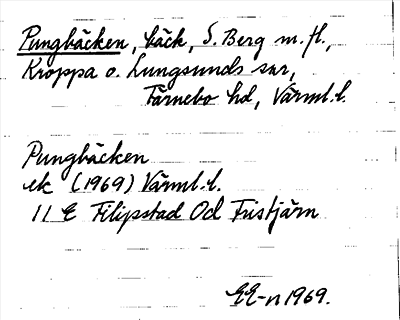 Pungbäcken, bäck, S. Berg m. fl.,
Kroppa o. Lungsunds snr,
Färnebo hd, Värml. l.
Pungbäcken
ek (1969) Värml. l.
11 E Filipstad 0d Fristjärn
EE-n 1969.